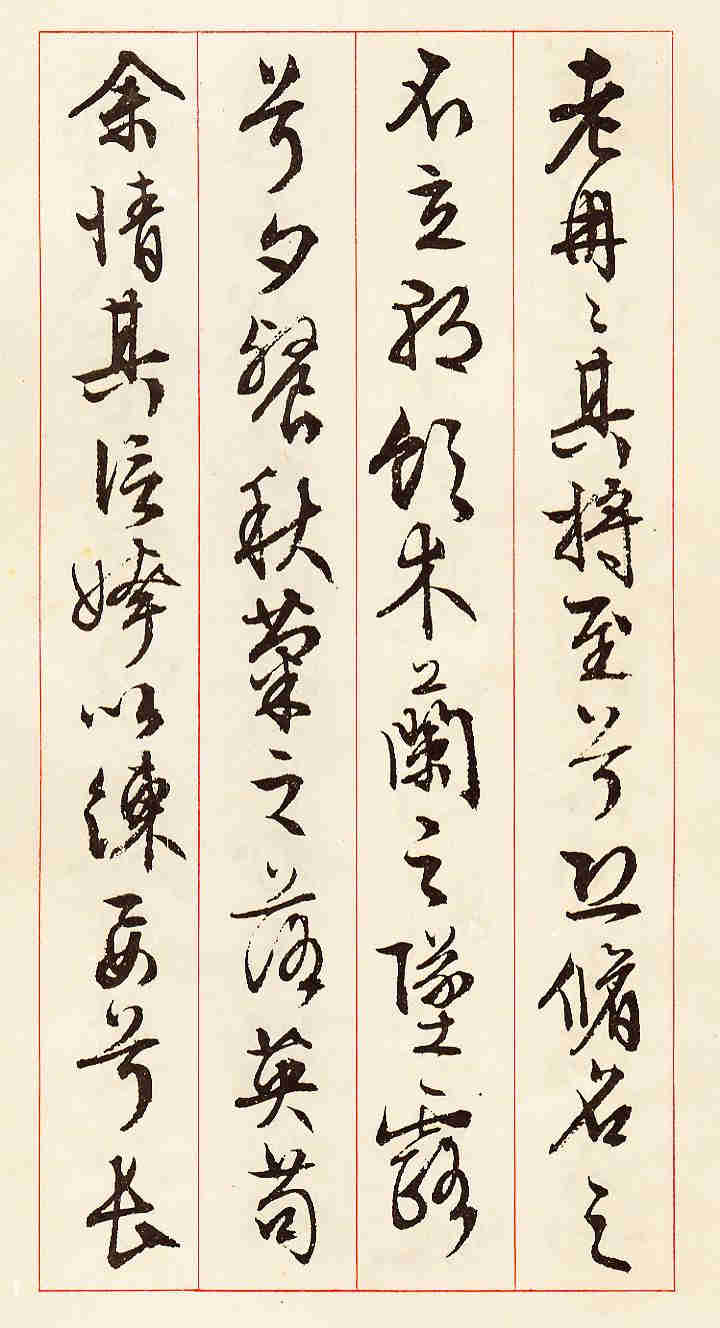 老冉々其將至兮恐脩名之
不立朝飲木蘭之墜露
兮夕餐秋菊之落英苟
余情其信姱以練要兮長